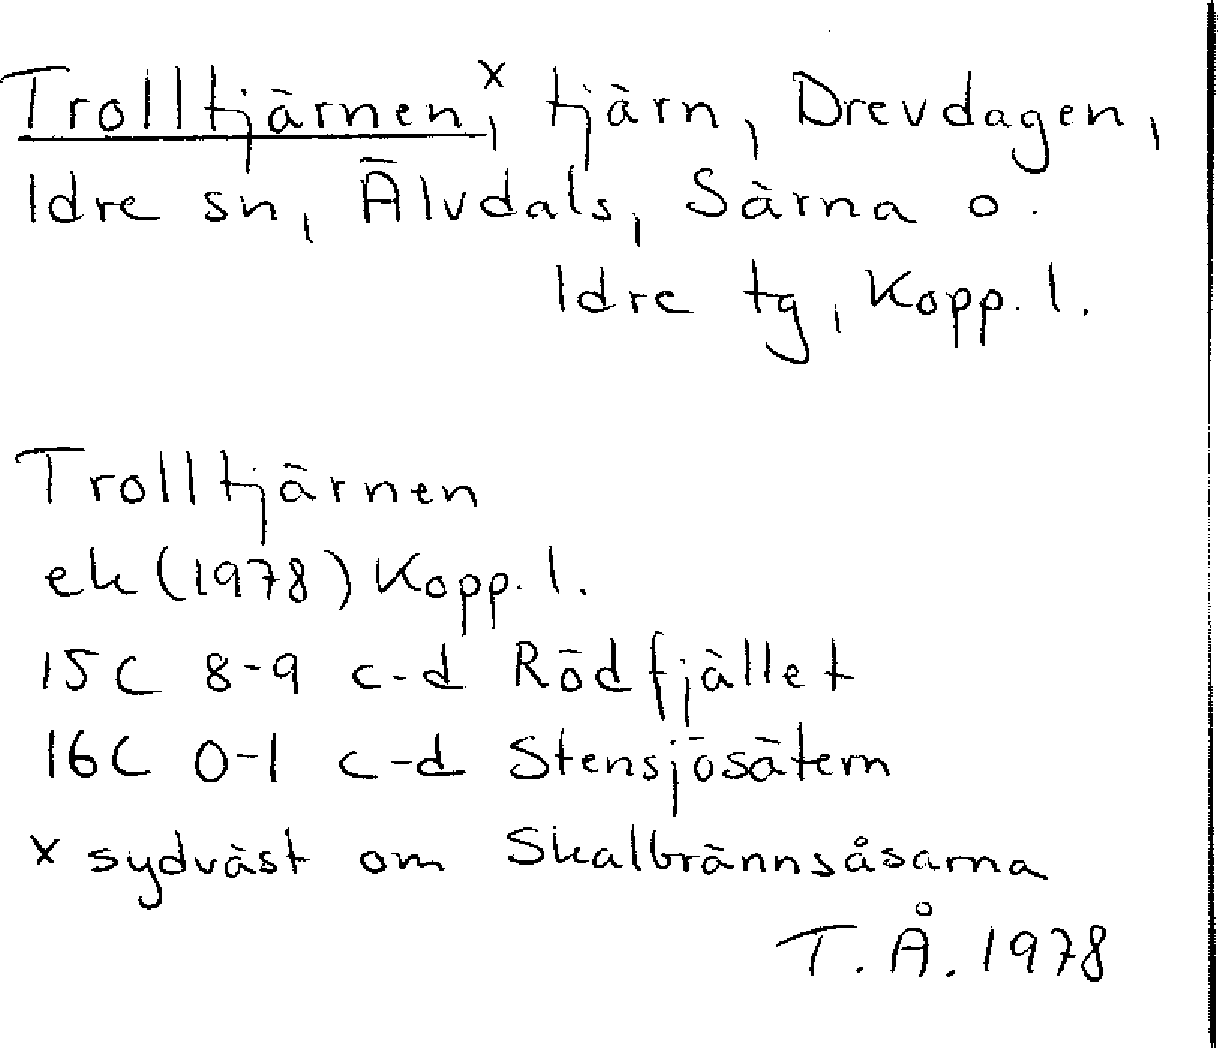 Trolltjärnen,ˣ tjärn, Drevdagen,
Idre sn, Älvdals, Särna o.
Idre tg, Kopp. l.
Trolltjärnen
ek (1978) Kopp. l.
15C 8-9 c-d Rödfjället
16C 0-1 c-d Stensjösätern
x sydväst om Skalbrännsåsarna
T. Å. 1978